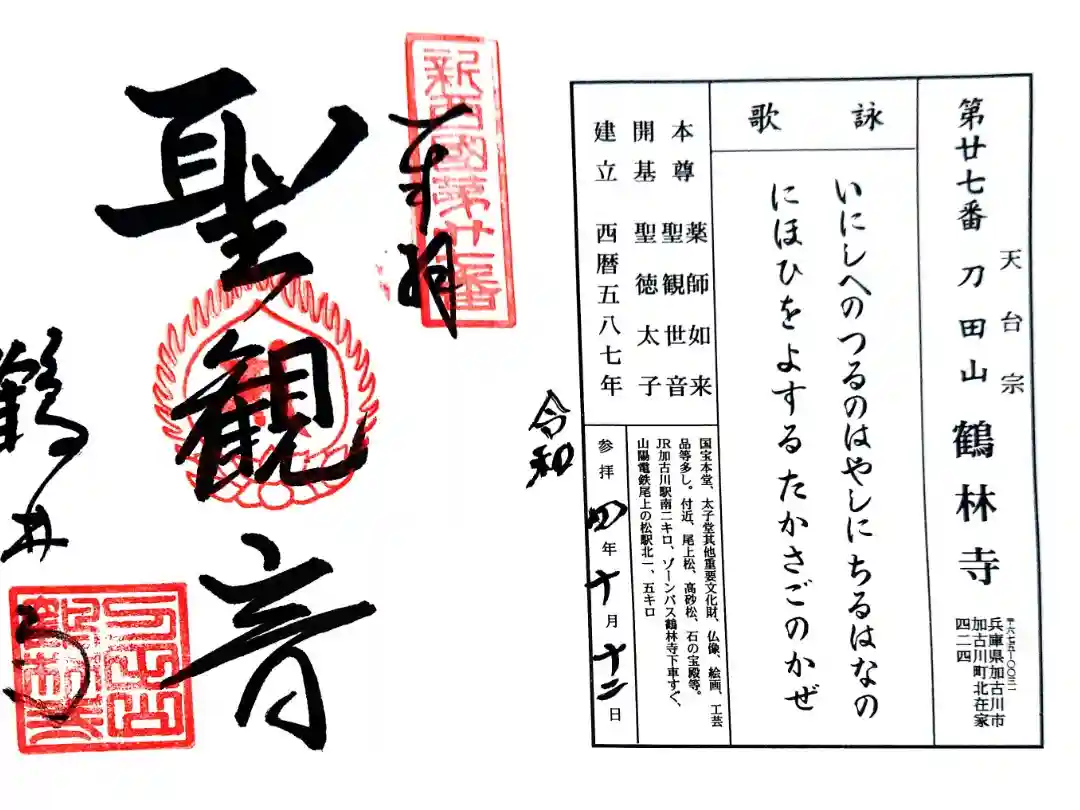 第廿七番 刀田山 鶴林寺
天台宗
兵庫県加古川市
加古川町北在家
四二四
詠歌
いにしへのつるのはやしにちるはなの
にほひをよするたかさごのかぜ
本尊 薬師如来
聖観世音
開基 聖徳太子
建立 西暦五八七年
国宝本堂、太子堂其他重要文化財、仏像、絵画、工芸
品等多し。付近、尾上松、高砂松、石の宝殿等。
JR加古川駅南二キロ、ゾーンバス鶴林寺下車すぐ、
山陽電鉄尾上の松駅北一、五キロ
令和
参拝 四年十月十二日
新西國第廿七番
奉拝
聖観音
鶴林寺